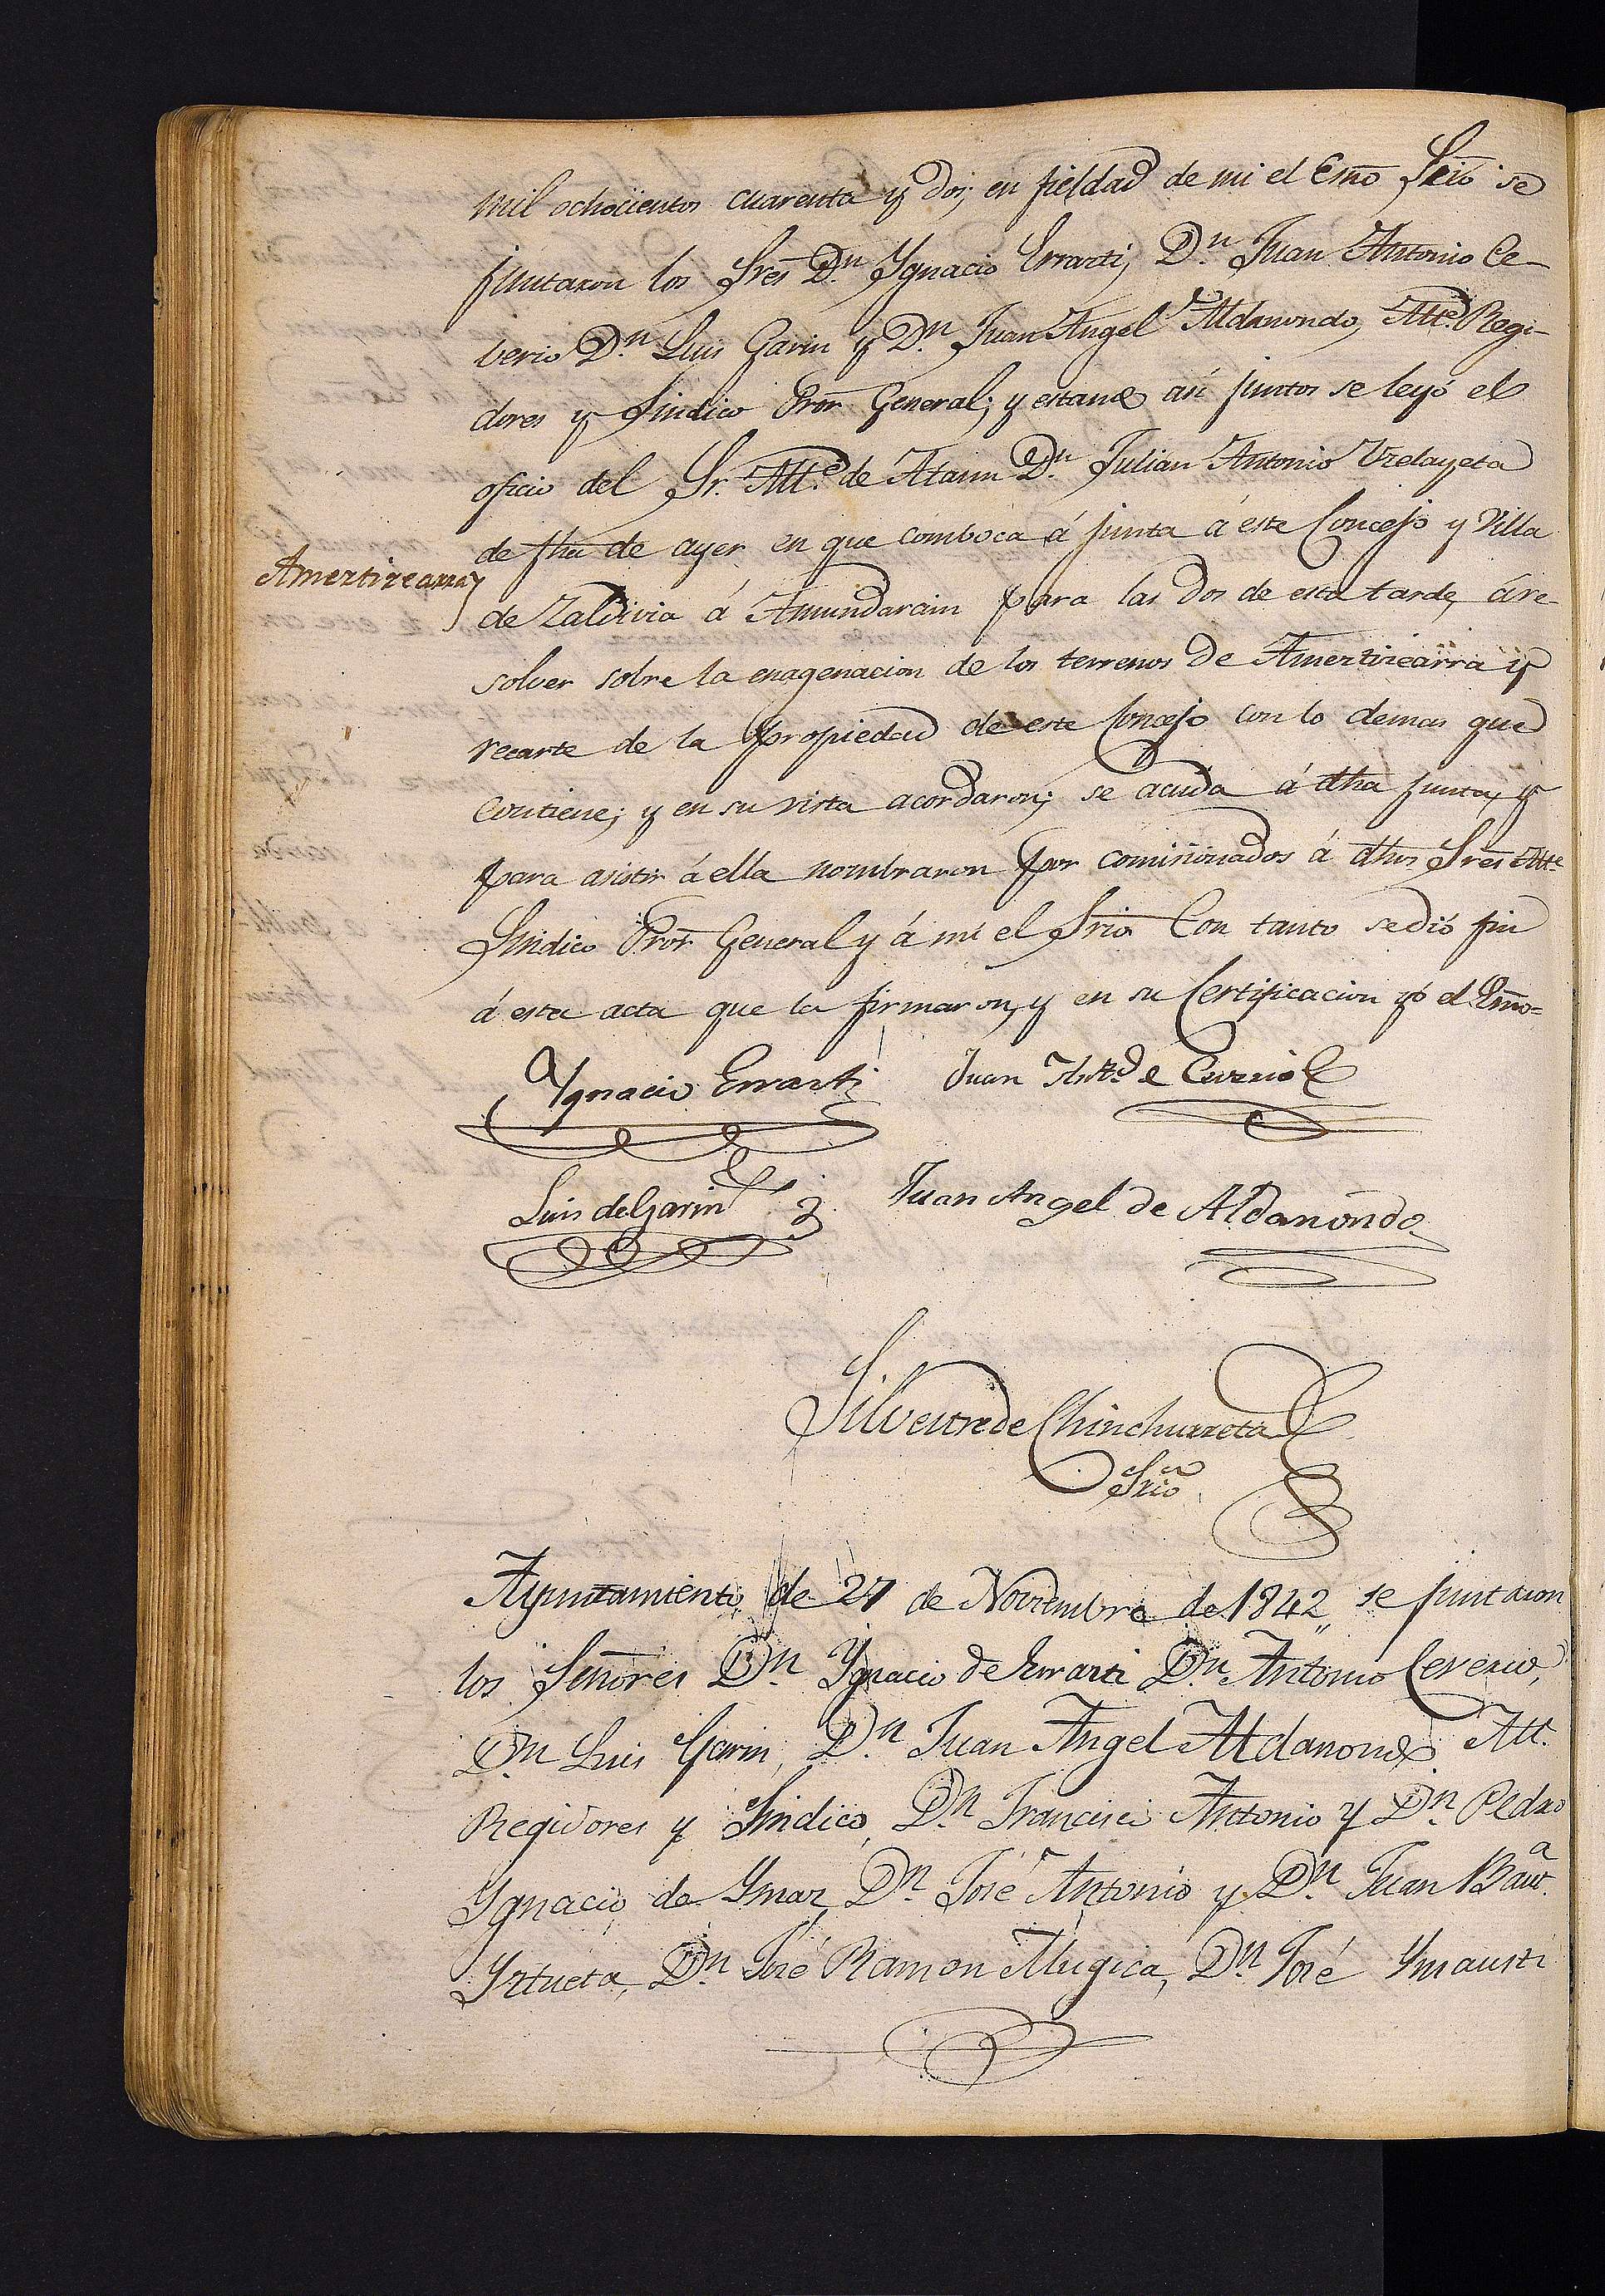 mil ochocientos cuarenta y dos; en fieldad de mi el Esno Srio se
juntaron los Sres Dn Ygnacio Errarti, Dn Juan Antonio Ce-
berio Dn Luis Garin y Dn Juan Angel Aldanondo, Alte Regi-
dores y Sindico Pror General; y estando asi juntos se leyó el
oficio del Sr. Alte de Ataun Dn Julian Antonio Urdayeta
de fha de ayer en que comboca á junta á este Concejo y Villa
Amezticearra
de Zaldivia á Amundarain para las dos de esta tarde, á re-
solver sobre la enagenacion de los terrenos de Amezticearra y
recarte de la propiedad de este Concejo con lo demas que
contiene; y en su vista acordaron; se acuda á dha junta, y
para asistir á ella nombraron por comisionados á dhos Sres Alte
Sindico Pror General y á mi el Srio Con tanto se dió fin
á esta acta que la firmaron, y en su Certificacion yó el Esno=
Ygnacio Errarti Juan Anto de Ceverio
Luis de Garin Juan Angel de Aldanondo
Silvestre de Chinchurreta
Srio
Ayuntamiento de 27 de Noviembre de 1842,, se juntaron
los Señores Dn Ygnacio de Errarti Dn Antonio Ceverio,
Dn Luis Garin, Dn Juan Angel Aldanondo Alt.
Regidores y Sindico, Dn Francisco Antonio y Dn Pedro
Ygnacio de Ymaz, Dn José Antonio y Dn Juan Bauta
Yztueta, Dn José Ramon Mugica, Dn José Ymausti